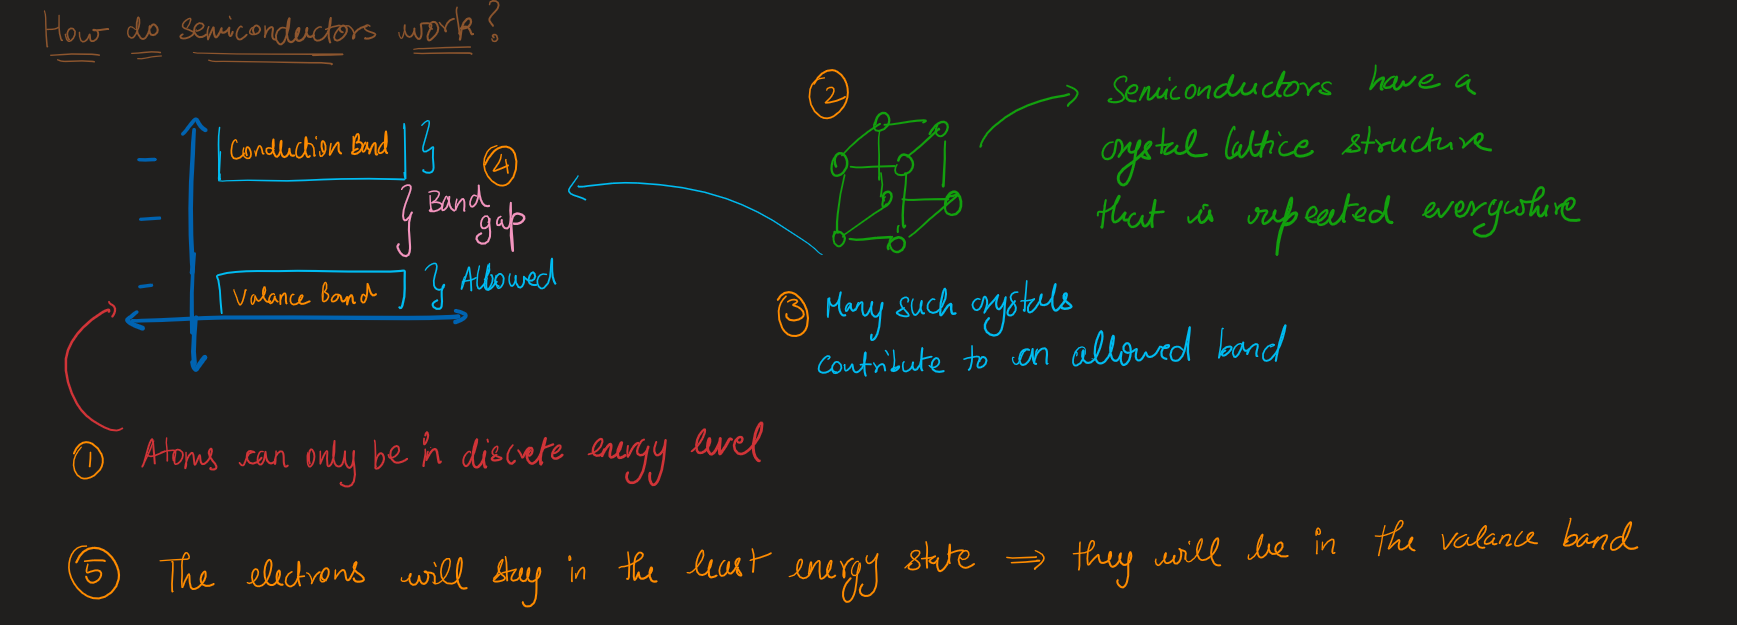 How do semiconductors work?
Conduction Band
④
Band
gap
Valance Band
Allowed
②
Semiconductors have a
crystal lattice structure
that is repeated everywhere
③ Many such crystals
contribute to an allowed band
① Atoms can only be in discrete energy level
⑤ The electrons will stay in the least energy state ⇒ they will be in the valance band